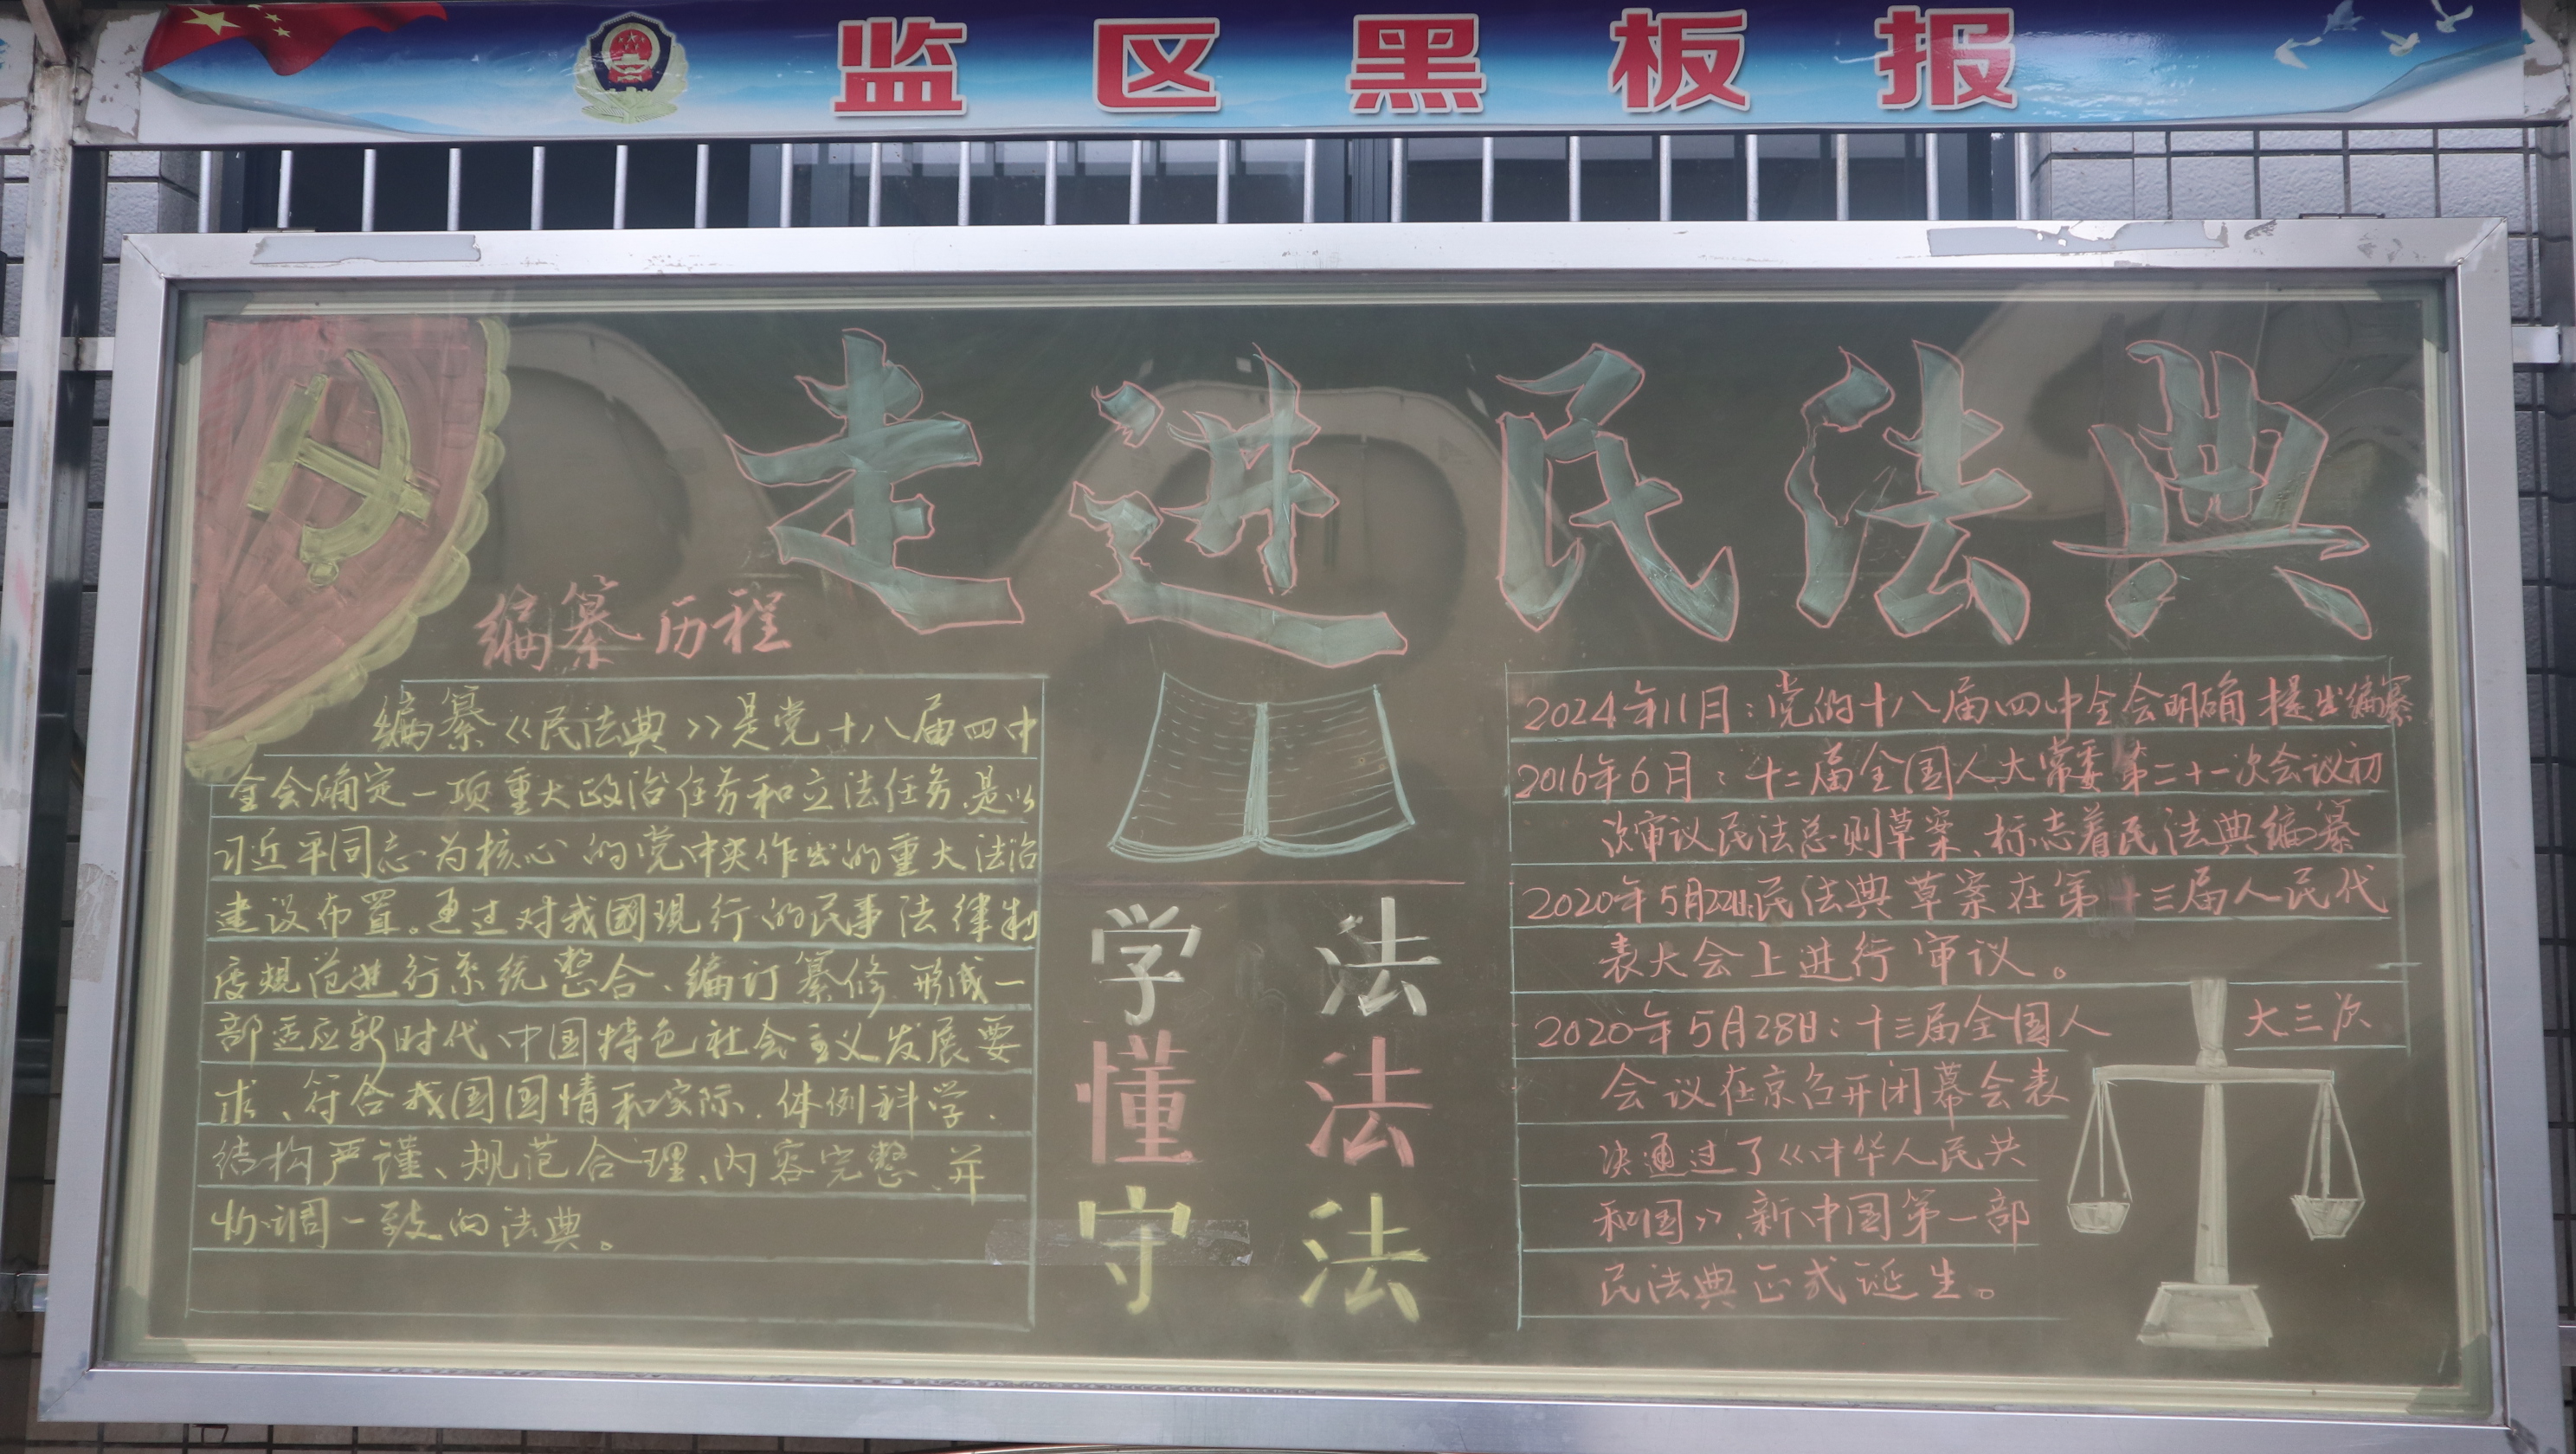 监区黑板报
走进民法典
编纂历程
编纂《民法典》是党十八届四中
全会确定一项重大政治任务和立法任务,是以
习近平同志为核心的党中央作出的重大法治
建设布置。通过对我國現行的民事法律制
度規范进行系统整合、编订纂修,形成一
部适应新时代中国特色社会主义发展要
求、符合我国国情和实际,体例科学、
结构严谨、规范合理、内容完整、并
协调一致的法典。
学法
懂法
守法
2024年11月:党的十八届四中全会明确提出编纂
2016年6月:十二届全国人大常委第二十一次会议初
次审议民法总则草案、标志着民法典编纂
2020年5月22日:民法典草案在第十三届人民代
表大会上进行审议。
2020年5月28日:十三届全国人大三次
会议在京召开闭幕会表
决通过了《中华人民共
和国》,新中国第一部
民法典正式诞生。